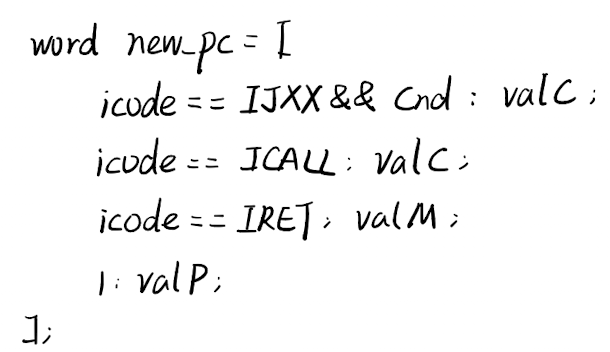 word new_pc = [
icode == IJXX && Cnd : valC;
icode == ICALL : valC;
icode == IRET; valM;
1 : valP;
];